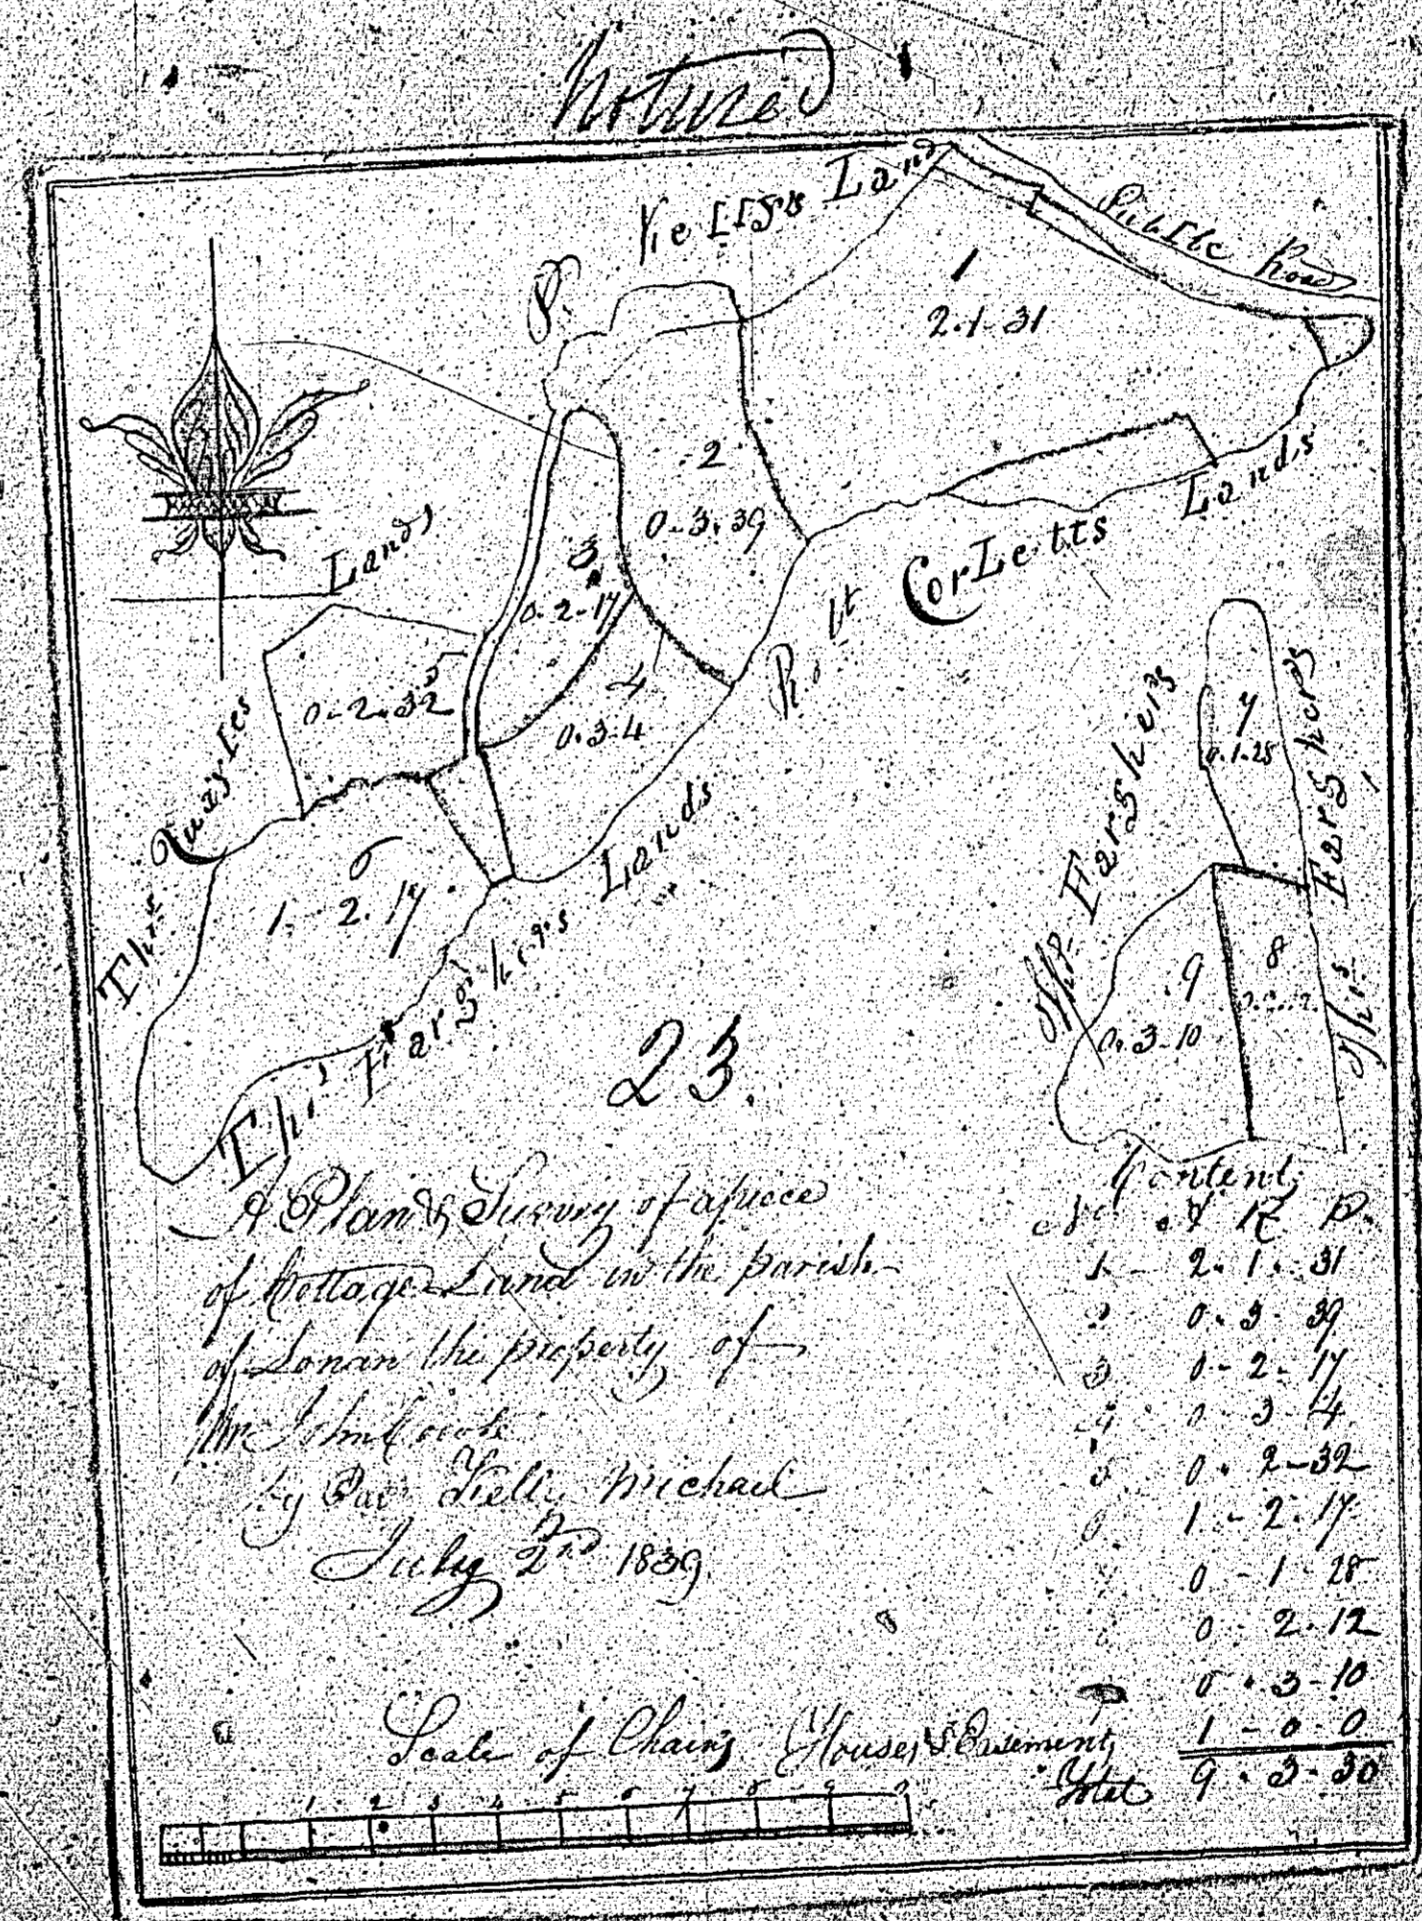 Noticed
P. Kellys Land
Public Road
1
2.1-31
2
0-3.39
3
0.2-17
4
0.3-4
5
0-2.32
6
1. 2.17
Thos Quayles Lands
Robt CorLetts Lands
Thos Farghers Lands
Farghers
Thos Farghers
7
0.1.28
8
9
0.3-10
23.
A Plan & Survey of a piece
of Cottage Land in the parish
of Lonan the property of
Mr John
by Kelly Michael
July 2nd 1839
Content
A R P.
1 - 2. 1. 31
2 0. 3 39
3 0-2-17
4 0-3-4
5 0. 2-32
6 1-2.17
7 0-1-28
0-2.12
0.3-10
Houses & Easement 1-0-0
Total 9.3-30
Scale of Chains
1 2 3 4 5 6 7 8 9